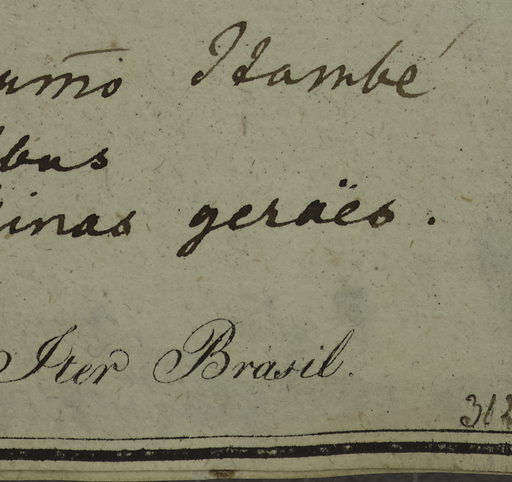 um̄o Itambé
bus
inas geräes.
Iter Brasil.
312